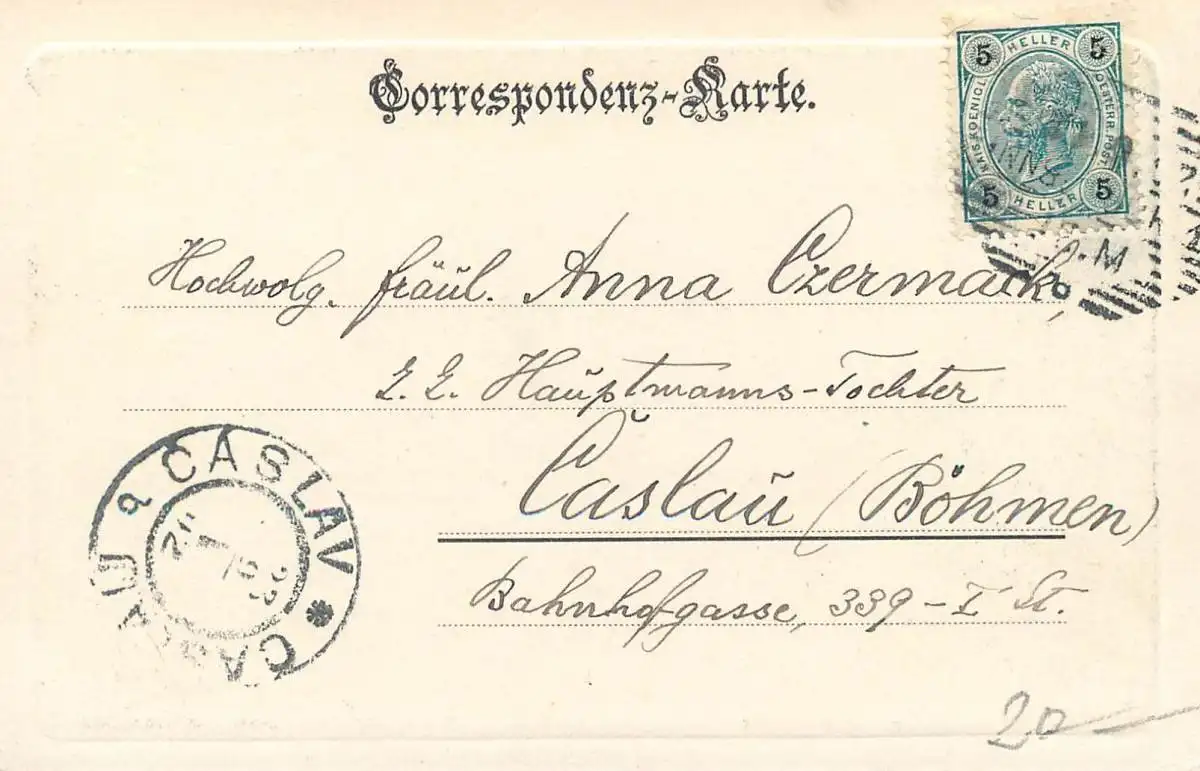 Correspondenz-Karte.
5 HELLER 5
KAIS. KOENIGL. OESTERR. POST.
5 HELLER 5
INNS
M
Hochwolg. fräul. Anna Czermack,
k. k. Hauptmanns-Tochter
Časlau (Böhmen)
Bahnhofgasse, 339 - I St.
CASLAV * CASLAU a
20